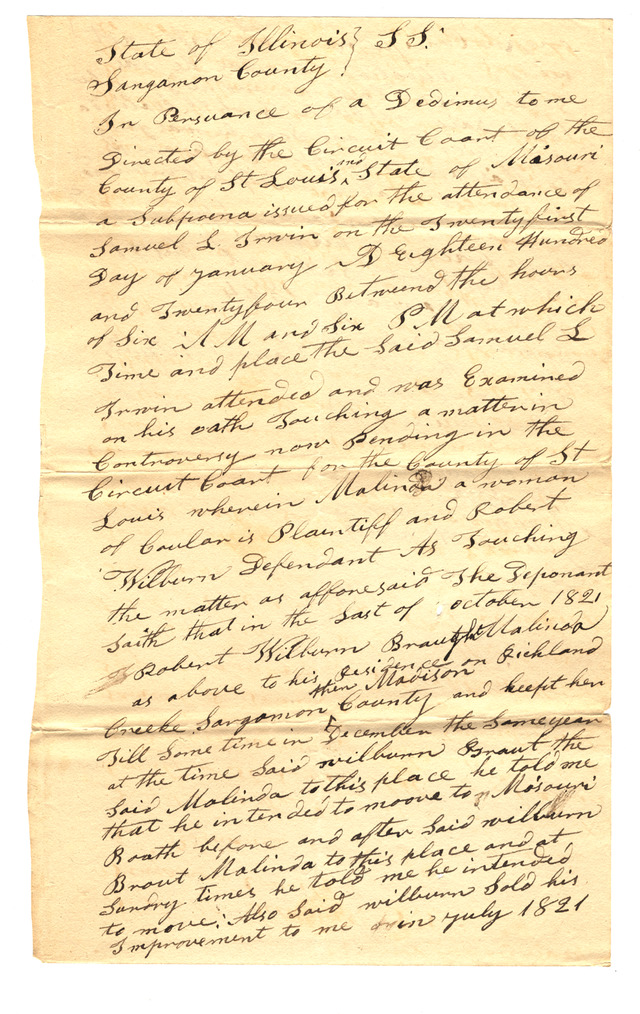 State of Illinois } S S.
Sangamon County }
In Persuance of a Dedimus to me
Directed by the Circuit Coart of the
County of St Louis and State of Missouri
a Subpoena issued for the attendance of
Samuel L. Irwin on the Twentyfirst
Day of January AD Eighteen Hundred
and Twentyfour Betweend the hours
of Six AM and Six PM at which
Time and place the Said Samuel L
Irwin attended and was Examined
on his oath Touching a matter in
Controversy now Pending in the
Circuit Coart for the County of St
Louis wherein Malinda a woman
of Coular is Plaintiff and Robert
Wilburn Defendant As Touching
the matter as afforesaid The Deponant
Saith that in the Last of october 1821
Robert Wilburn Braught Malinda
as above to his Residence on Richland
Creeke Sangamon then Madison County and keept her
Till Some time in December the Same year
at the time Said wilburn Braut the
Said Malinda to this place he told me
that he intended to moove to Missouri
Boath before and after Said wilburn
Braut Malinda to this place and at
Sundry times he told me he intended
to move. Also Said wilburn Sold his
Improvement to me in July 1821